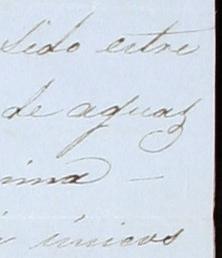 sido entre
de aguas
ima —
i únicos